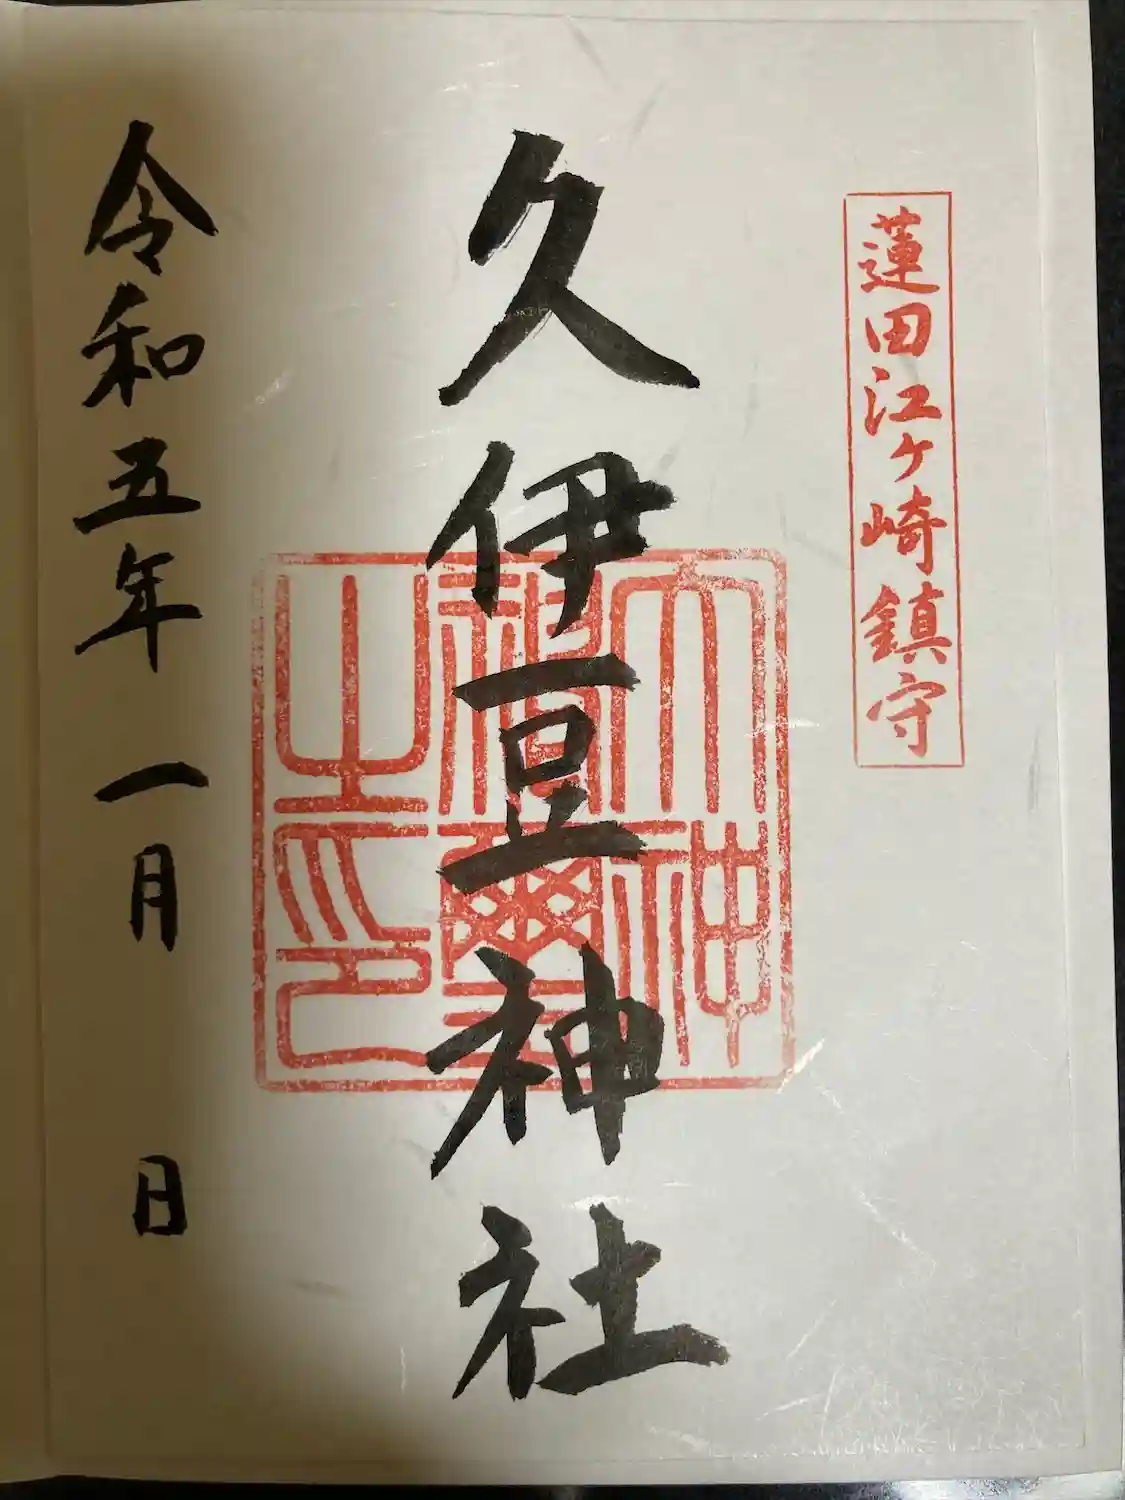 蓮田江ヶ崎鎮守
久伊豆神社
令和五年一月 日